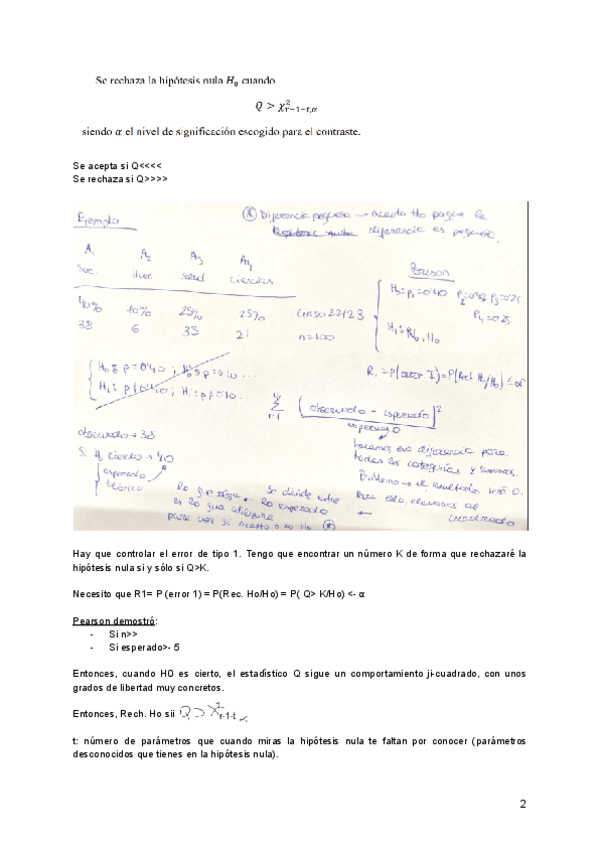 Se rechaza la hipótesis nula H₀ cuando
Q > χ²ᵣ₋₁₋ₜ,α
siendo α el nivel de significación escogido para el contraste.
Se acepta si Q<<<<
Se rechaza si Q>>>>
Ejemplo
(*) Diferencia pequeña → acepto Ho porque la
diferencia es pequeña.
A₁ A₂ A₃ A₄
Soc. Hum. Salud Ciencias
40% 10% 25% 25% Curso 22/23
38 6 35 21 n=100
Pearson
H₀: p₁=0'40 p₂=0'10 p₃=0'25
p₄=0'25
H₁: Rb. H₀
R₁ = P(error I) = P(Rech H₀/H₀) ≤ α
H₀: p=0'40; H₀: p=0'10 ...
H₁: p≠0'40; H₁: p≠0'10 ...
Σ [observado - esperado]²
esperado
observado → 38
Si H₀ cierto → 40
esperado
teórico
hacemos esa diferencia para
todas las categorías y sumamos
Problema → el resultado será 0.
Para ello, elevamos al
cuadrado
Se divide entre
lo esperado
es lo que utilizaré
para ver si acepto o no Ho (*)
Hay que controlar el error de tipo 1. Tengo que encontrar un número K de forma que rechazaré la
hipótesis nula si y sólo si Q>K.
Necesito que R1= P (error 1) = P(Rec. Ho/Ho) = P( Q> K/Ho) <- α
Pearson demostró:
- Si n>>
- Si esperado>- 5
Entonces, cuando H0 es cierto, el estadístico Q sigue un comportamiento ji-cuadrado, con unos
grados de libertad muy concretos.
Entonces, Rech. Ho sii Q > χ²r-1-t, α
t: número de parámetros que cuando miras la hipótesis nula te faltan por conocer (parámetros
desconocidos que tienes en la hipótesis nula).
2